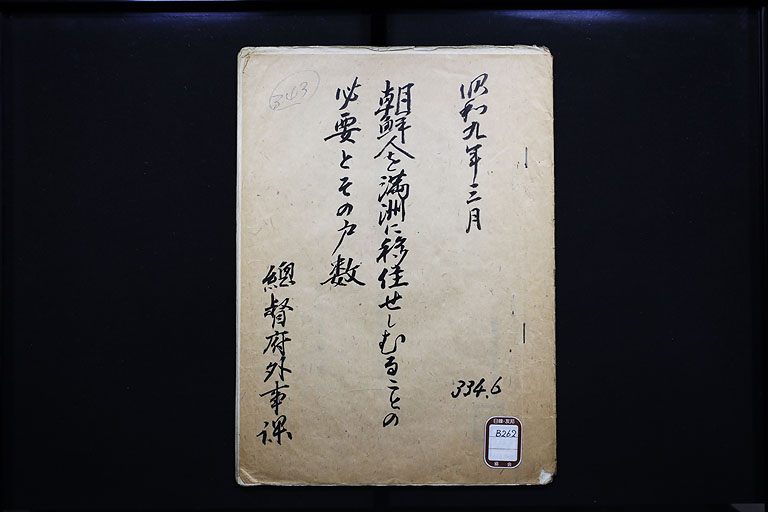 昭和九年三月
朝鮮人を満洲に移住せしむることの
必要とその戸数
總督府外事課
334.6
B262